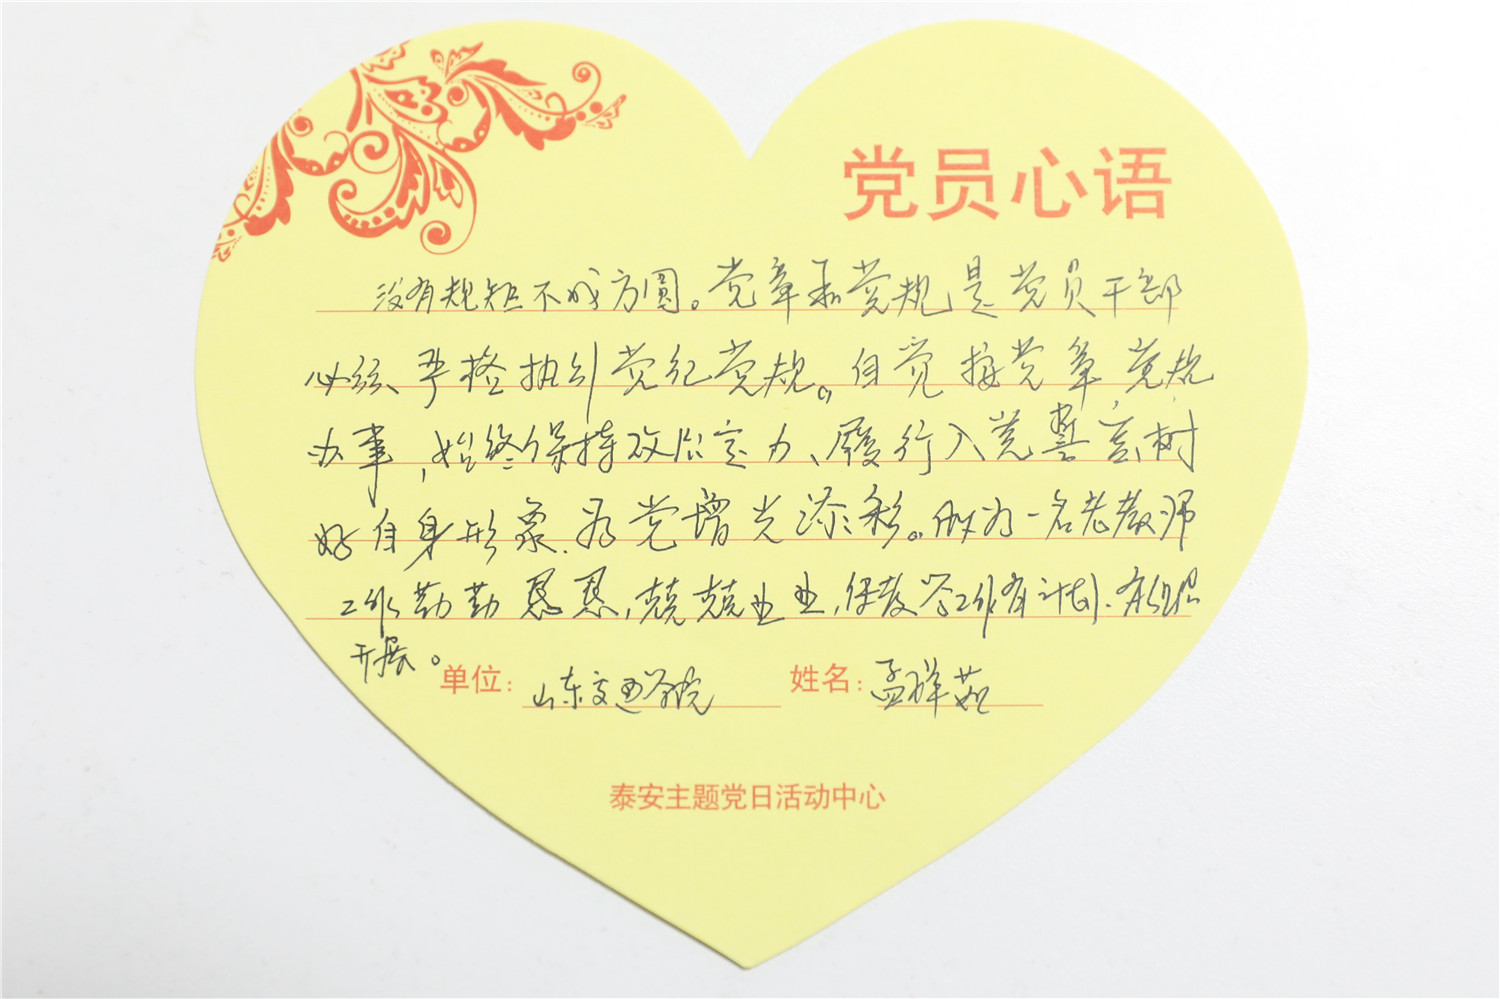 党员心语
没有规矩不成方圆。党章和党规是党员干部
必须严格执行党纪党规。自觉按党章党规
办事,始终保持政治定力、履行入党誓言,树
好自身形象,为党增光添彩。做为一名老教师
工作勤勤恳恳,兢兢业业,保教学工作有计划、有组织
开展。
单位:山东交通学院 姓名:孟祥茹
泰安主题党日活动中心